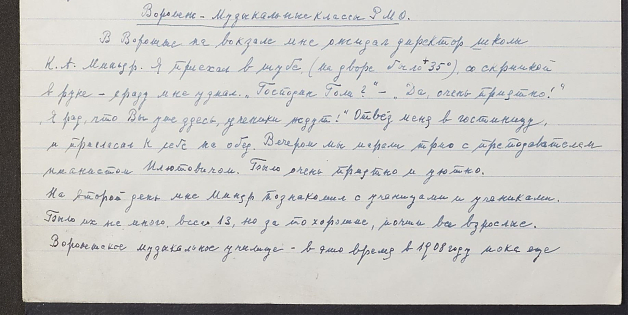 Воронеж - Музыкальные классы Р М О.
В Воронеже на вокзале мне ожидал директор школы
К. А. Миндр. Я приехал в шубе (на дворе было +35°), со скрипкой
в руке - сразу мне узнал. "Господин Гольд?" - "Да, очень приятно!"
"Я рад, что Вы уже здесь, ученики ждут!" Отвёз меня в гостиницу,
и пригласил к себе на обед. Вечером мы играли трио с преподавателем
пианистом Илютовичем. Было очень приятно и уютно.
На второй день мне Миндр познакомил с ученицами и учениками.
Было их не много, всего 13, но за то хорошие, почти все взрослые.
Воронежское музыкальное училище - в это время в 1908 году пока еще